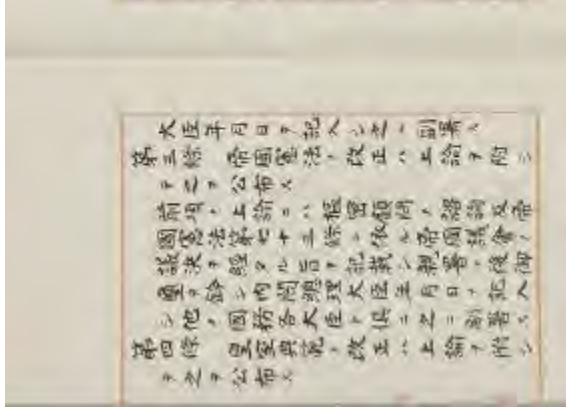 大臣年月日ヲ記入シ之ニ副署ス
第三條　帝國憲法ノ改正ハ上諭ヲ附シ
テ之ヲ公布ス
前項ノ上諭ニハ樞密顧問ノ諮詢及帝
國憲法第七十三條ニ依ル帝國議會ノ
議決ヲ經タル旨ヲ記載シ親署ノ後御
璽ヲ鈐シ内閣總理大臣年月日ヲ記入
シ他ノ國務各大臣ト倶ニ之ニ副署ス
第四條　皇室典範ノ改正ハ上諭ヲ附シ
テ之ヲ公布ス